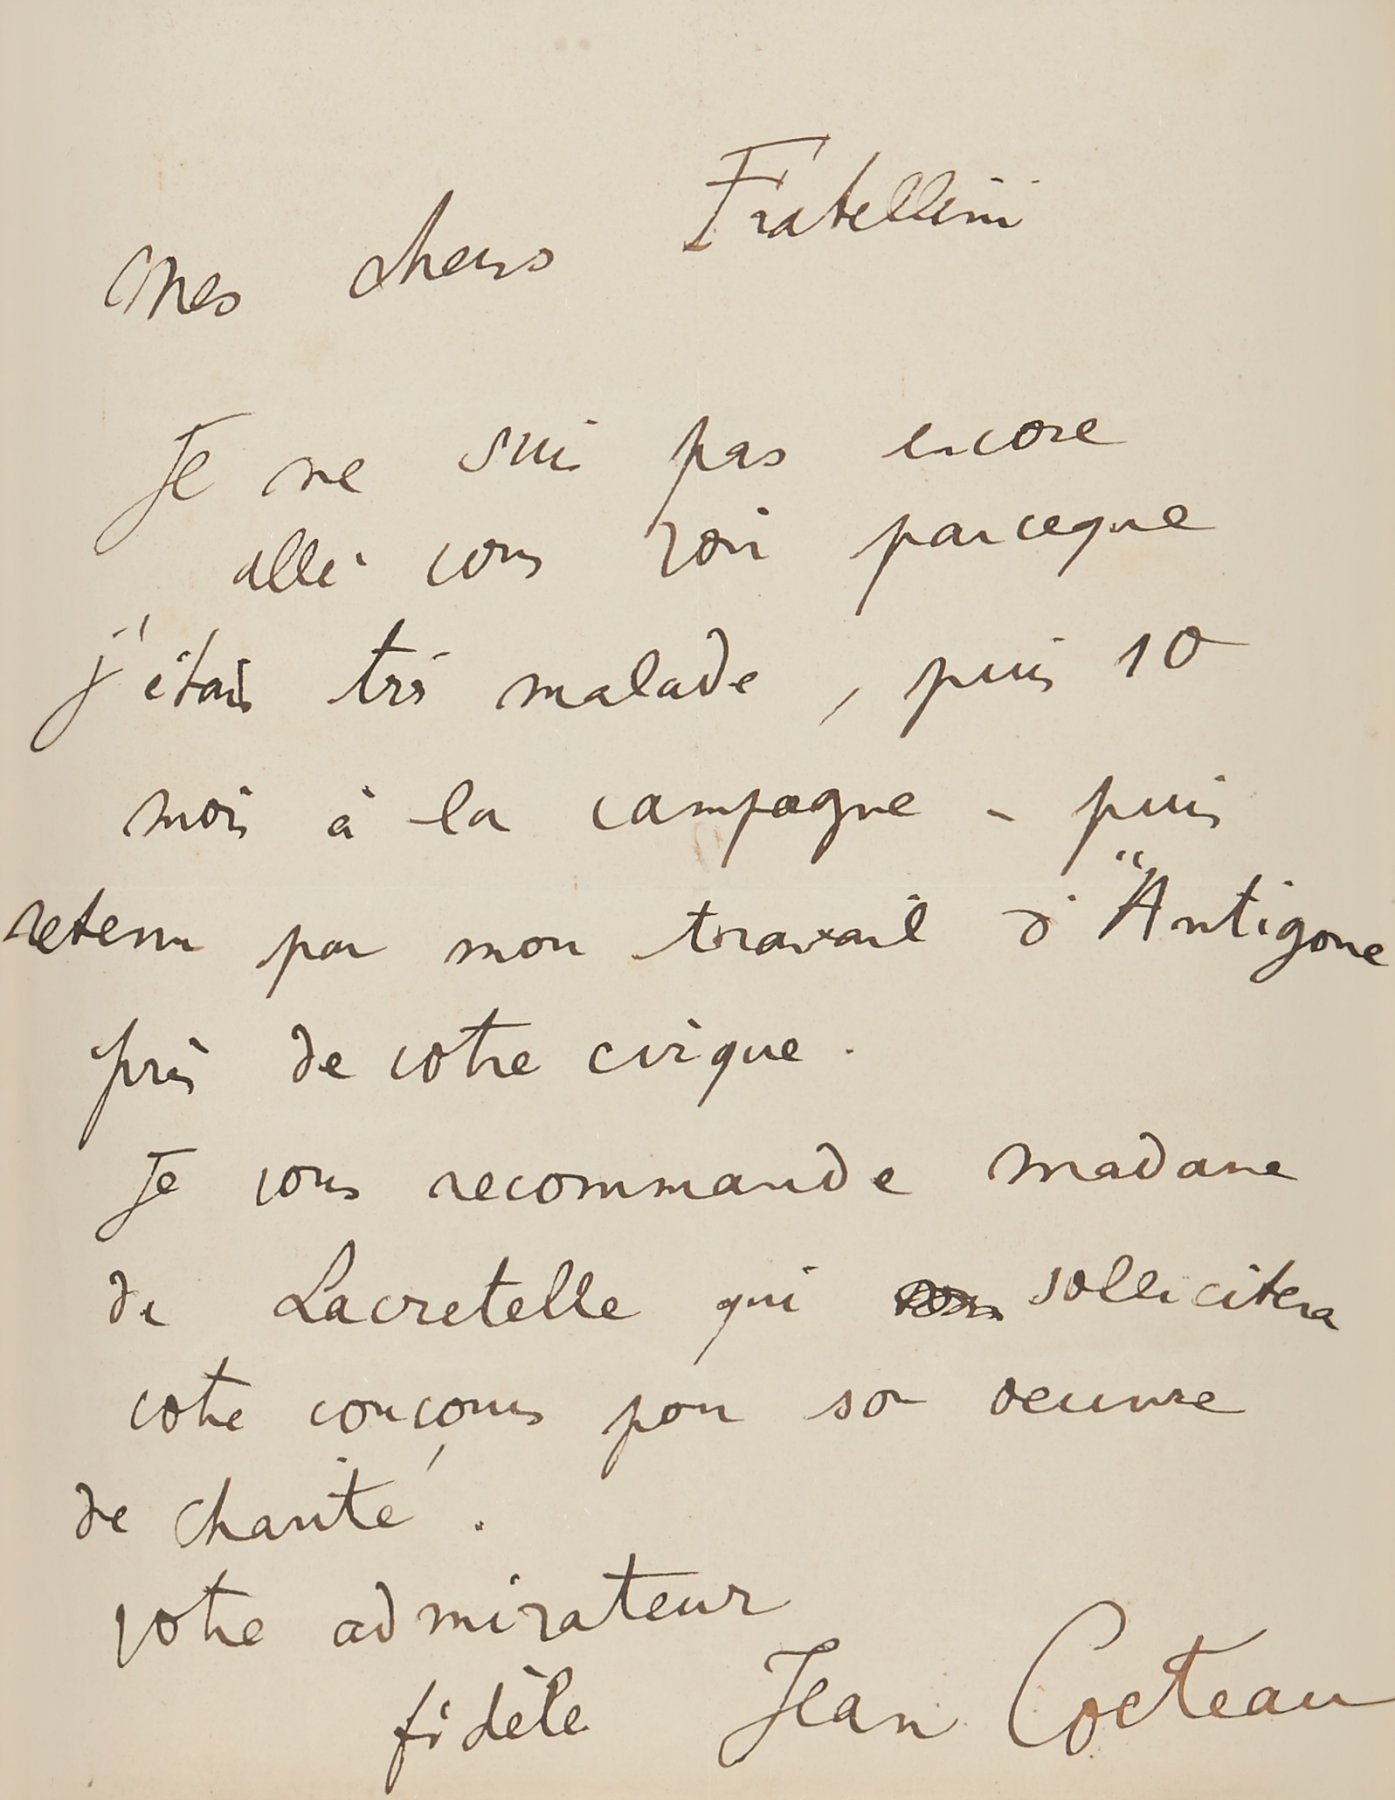 Mes chers Fratellini
Je ne suis pas encore
allé vous voir parceque
j'étais très malade, puis 10
mois à la campagne - puis
retenu par mon travail d'"Antigone
près de votre cirque.
Je vous recommande madame
de Lacretelle qui sollicitera
votre concours pour son oeuvre
de charité.
votre admirateur
fidèle Jean Cocteau